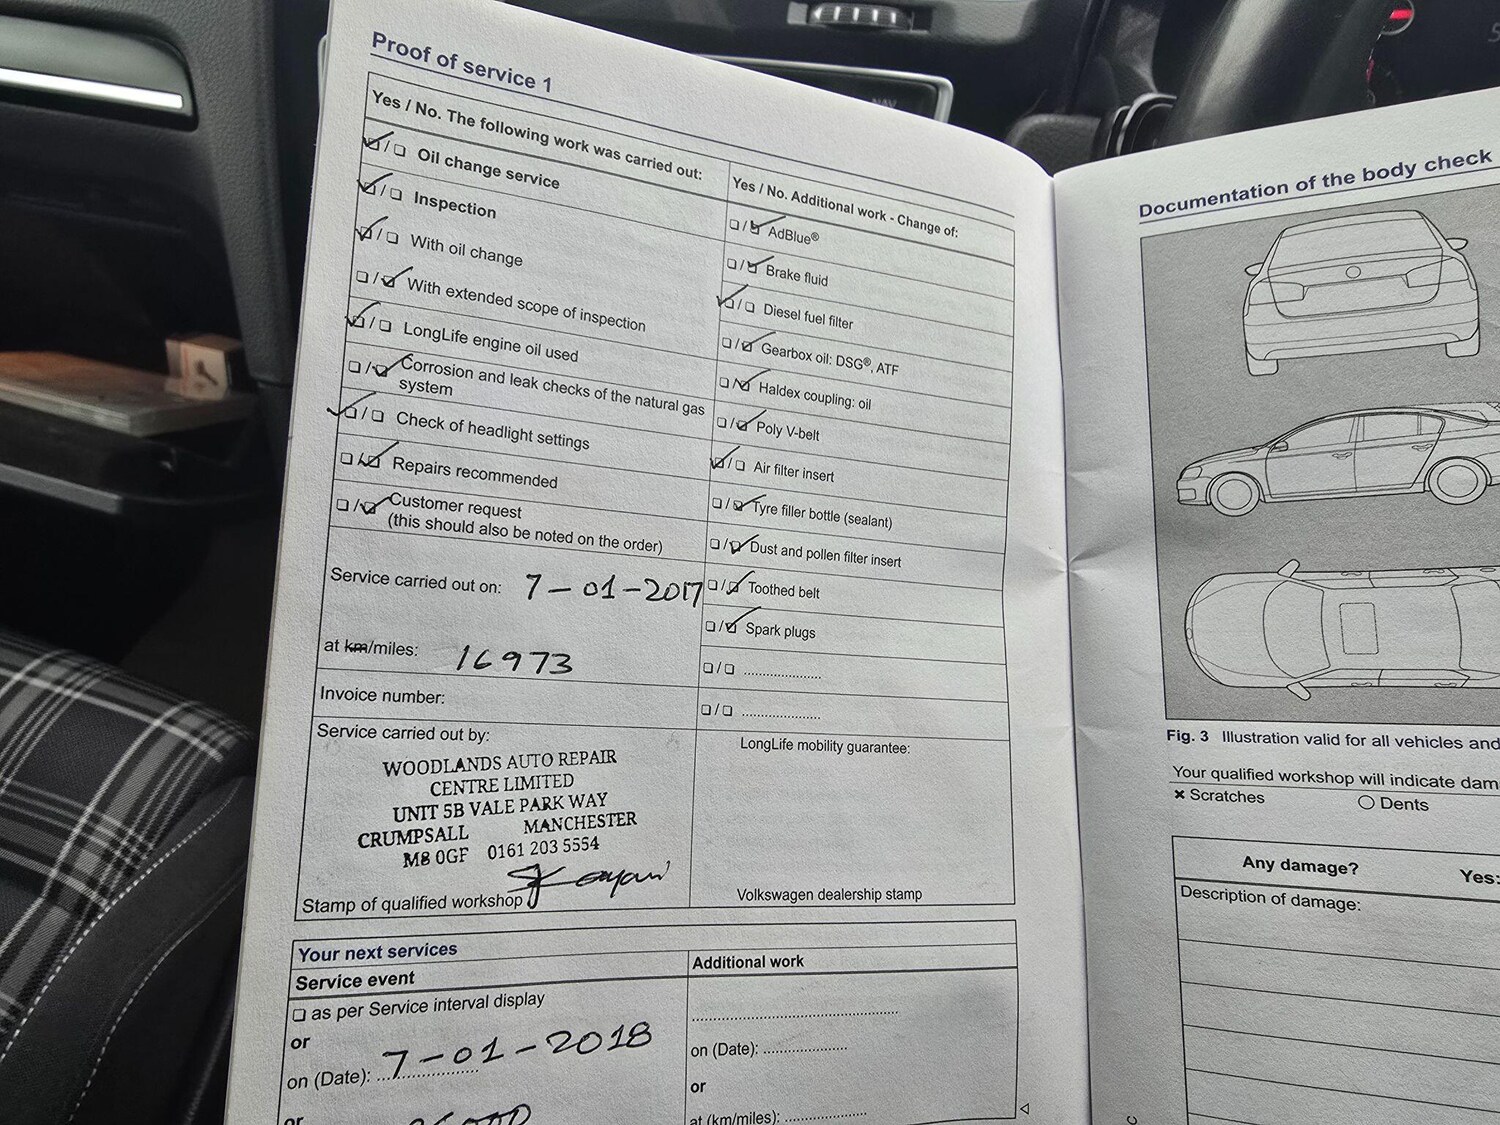 Proof of service 1
Yes / No. The following work was carried out:
☑ / ☐ Oil change service
☑ / ☐ Inspection
☑ / ☐ With oil change
☐ / ☑ With extended scope of inspection
☑ / ☐ LongLife engine oil used
☐ / ☑ Corrosion and leak checks of the natural gas
system
☑ / ☐ Check of headlight settings
☐ / ☑ Repairs recommended
☐ / ☑ Customer request
(this should also be noted on the order)
Service carried out on: 7-01-2017
at km/miles: 16973
Invoice number:
Service carried out by:
WOODLANDS AUTO REPAIR
CENTRE LIMITED
UNIT 5B VALE PARK WAY
CRUMPSALL MANCHESTER
M8 0GF 0161 203 5554
Stamp of qualified workshop
Yes / No. Additional work - Change of:
☐ / ☑ AdBlue®
☐ / ☑ Brake fluid
☑ / ☐ Diesel fuel filter
☐ / ☑ Gearbox oil: DSG®, ATF
☐ / ☑ Haldex coupling: oil
☐ / ☑ Poly V-belt
☑ / ☐ Air filter insert
☐ / ☑ Tyre filler bottle (sealant)
☐ / ☑ Dust and pollen filter insert
☐ / ☑ Toothed belt
☐ / ☑ Spark plugs
☐ / ☐ ....................
☐ / ☐ ....................
LongLife mobility guarantee:
Volkswagen dealership stamp
Your next services
Service event
☐ as per Service interval display
or
on (Date): 7-01-2018
or
Additional work
on (Date): ....................
or
at (km/miles): ....................
Documentation of the body check
Fig. 3 Illustration valid for all vehicles and
Your qualified workshop will indicate dam
× Scratches ○ Dents
Any damage? Yes:
Description of damage:
NAV